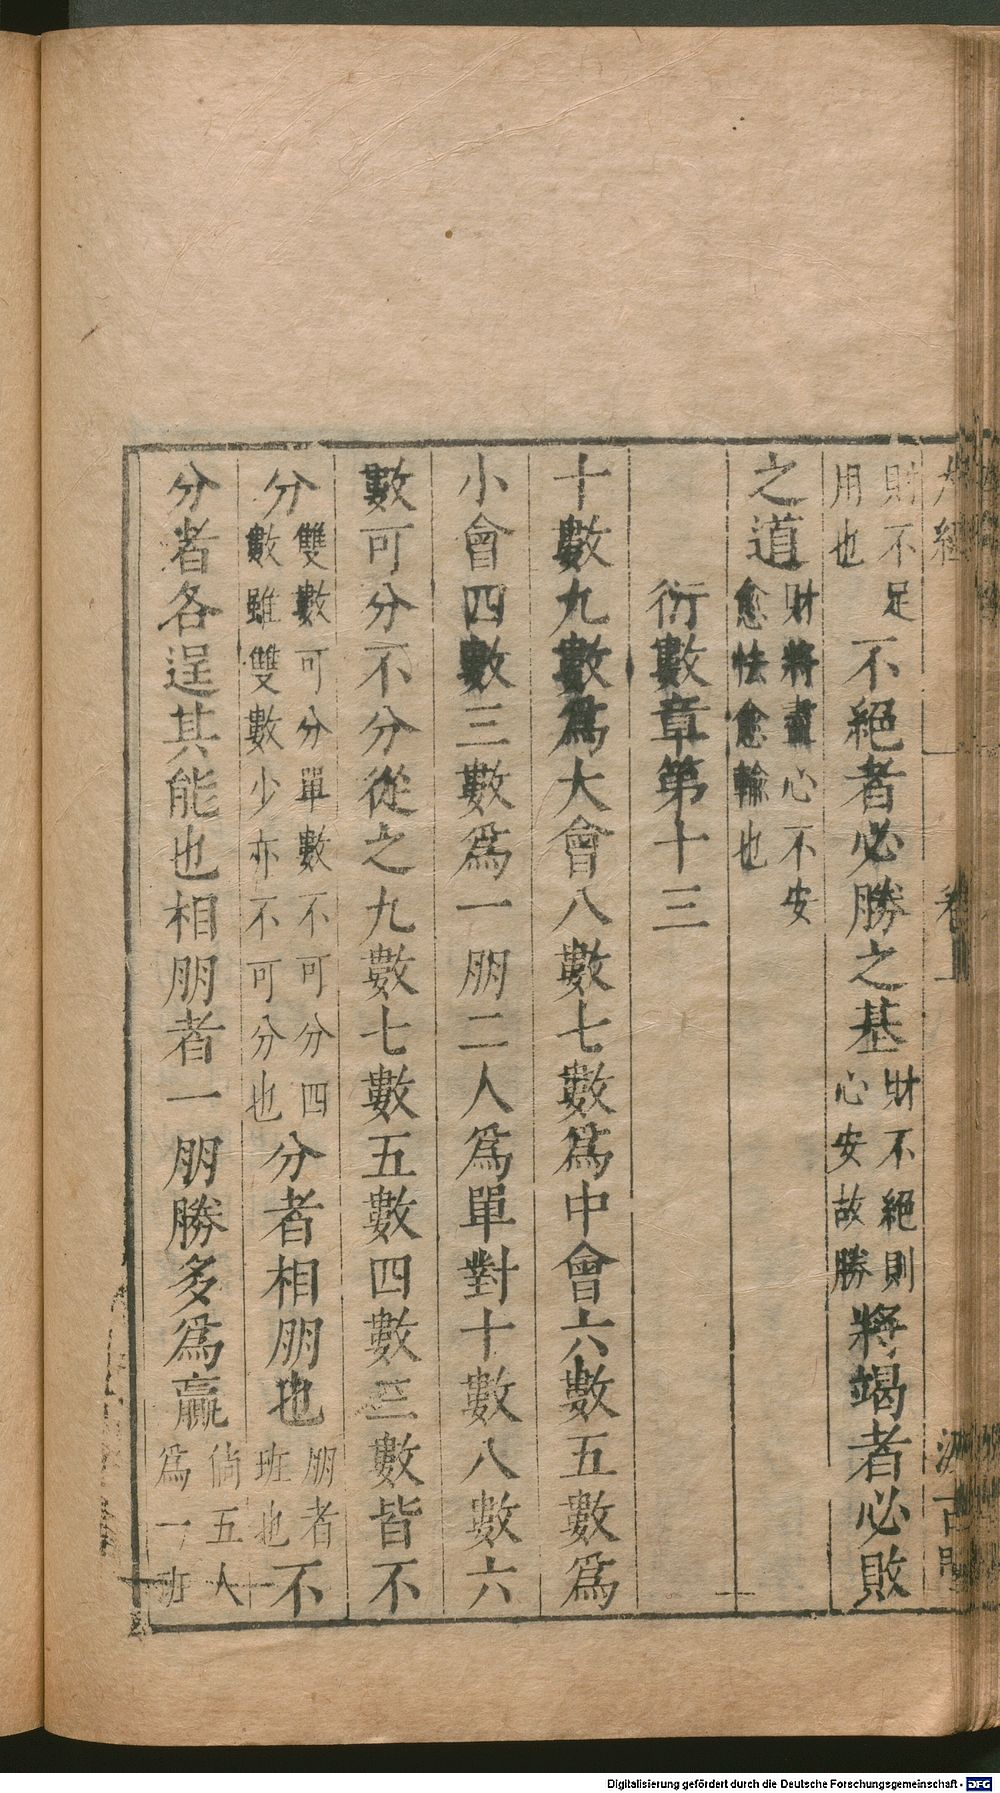 丸經 卷上 汲古閣
財不足用也不絕者必勝之基財不絕則心安故勝將竭者必敗
之道財將盡心不安愈怯愈輸也
衍數章第十三
十數九數爲大會八數七數爲中會六數五數爲
小會四數三數爲一朋二人爲單對十數八數六
數可分不分從之九數七數五數四數三數皆不
分雙數可分單數不可分四數雖雙數少亦不可分也分者相朋也朋者班也不
分者各逞其能也相朋者一朋勝多爲贏倘五人爲一班
Digitalisierung gefördert durch die Deutsche Forschungsgemeinschaft - DFG